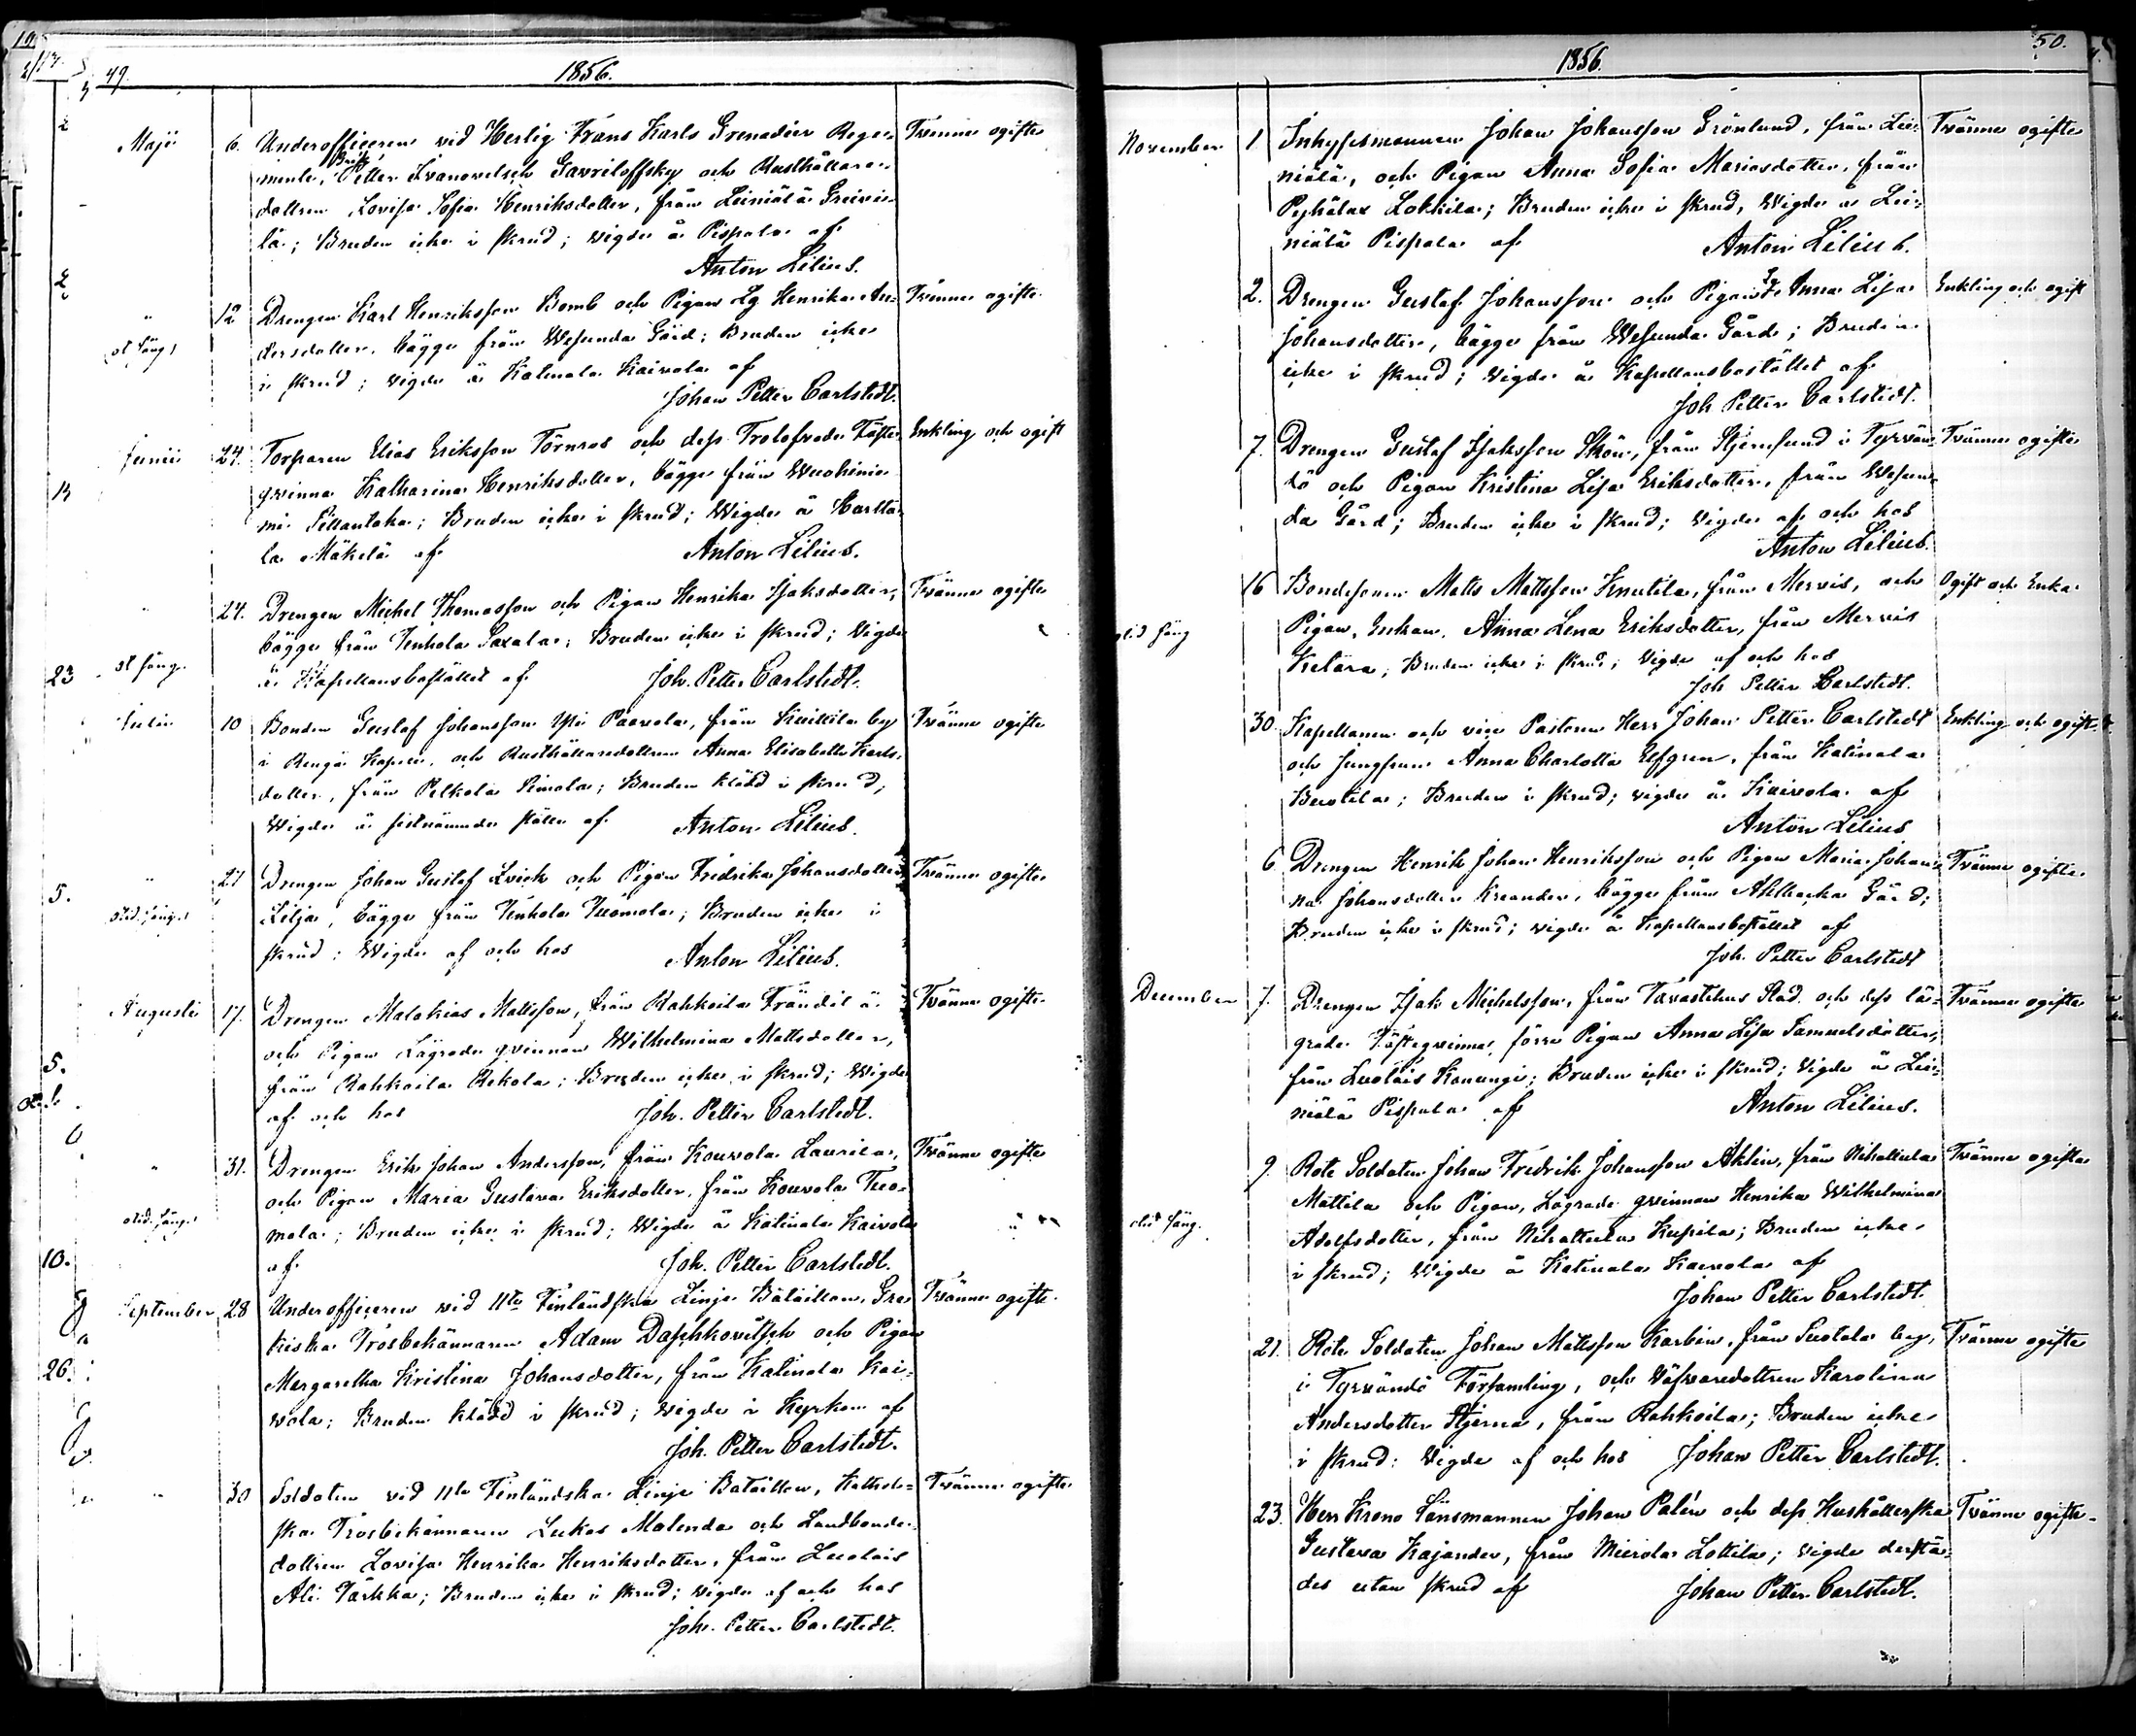 49. 1856.
Maji 6. Underofficeren vid Herlig Frans Karls Grenadier Rege- Tvenne ogifte
mente, Petter Ivanovitsch Gavriloffsky och Rusthållare-
dottren Lovisa Sofia Henriksdotter, från Leiniälä Greivi-
lä; Bruden icke i skrud; vigde å Pispala af
Anton Lilius.
" 12 Drengen Karl Henriksson Bomb och Pigan Lg Henrika An- Tvenne ogifte.
dersdotter, bägge från Wesunda Gård; Bruden icke
i skrud; vigde å Katinala Kaivola af
Johan Petter Carlstedt.
Junii 24. Torparen Elias Eriksson Törnros och dess Trolofvade Fäste- Enkling och ogift
qvinna Katharina Henriksdotter, bägge från Wuohinie
mi Pillantaka; Bruden icke i skrud; Wigde å Harttа-
la Mäkelä af Anton Lilius.
" 24. Drengen Michel Thomasson och Pigan Henrika Isaksdotter, Tvänne ogifte
bägge från Tenhola Saxala; Bruden icke i skrud; Vigde
å Kapellansbostället af Joh. Petter Carlstedt.
Julii 10 Bonden Gustaf Johansson Yli Paavola, från Kuittila by Tvänne ogifte
i Rengå Kapell, och Rusthållaredottren Anna Elisabetha Karls-
dotter, från Pelkola Simola; Bruden klädd i skrud;
Wigde å sistnämnde ställe af Anton Lilius.
" 27 Drengen Johan Gustaf Qvick och Pigan Fredrika Johansdotter Tvänne ogifte.
Lilja, bägge från Tenhola Tuomola; Bruden icke i
skrud; Wigde af och hos Anton Lilius.
Augusti 17. Drengen Malakias Mattsson, från Rahkoila Fränditä Tvänne ogifte.
och Pigan Lägrade qvinnan Wilhelmina Mattsdotter,
från Rahkoila Rekola; Bruden icke i skrud; Wigde
af och hos Joh. Petter Carlstedt.
" 31. Drengen Erik Johan Andersson, från Kouvola Laurila, Tvänne ogifte
och Pigan Maria Gustava Eriksdotter, från Kouvola Tuo-
mola; Bruden icke i skrud; Wigde å Katinala Kaivola
af Joh. Petter Carlstedt.
September 28 Underofficeren vid 11te Finländska Linje Bataillon, Gre- Tvänne ogifte.
kiska Trosbekännaren Adam Daschkovitsch och Pigan
Margaretha Kristina Johansdotter, från Katinala Kai-
vola; Bruden klädd i skrud; vigde i Kyrkan af
Joh. Petter Carlstedt.
" 30 Soldaten vid 11te Finländska Linje Bataillon, Kathol- Tvänne ogifte.
ska Trosbekännaren Lukas Malenda och Landbonde-
dottren Lovisa Henrika Henriksdotter, från Luolais
Ali Pärkkä; Bruden icke i skrud; vigde af och hos
Joh. Petter Carlstedt.
1856. 50.
November 1 Inhysesmannen Johan Johansson Grönlund, från Lei- Tvänne ogifte
niälä, och Pigan Anna Sofia Mariasdotter, från
Lokkila; Bruden icke i skrud, Wigde å Lei-
niälä Pispala af Anton Lilius.
2. Drengen Gustaf Johansson och Pigan Anna Lisa Enkling och ogift
Johansdotter, bägge från Wesunda Gård; Bruden
icke i skrud; Vigde å Kapellansbostället af
Joh Petter Carlstedt.
7. Drengen Gustaf Isaksson Skön, från Stjernsund i Tyrvän- Tvänne ogifte
tö och Pigan Kristina Lisa Eriksdotter, från Wesun-
da Gård; Bruden icke i skrud; vigde af och hos
Anton Lilius.
16 Bondesonen Matts Mattsson Knutila, från Mervis, och Ogift och Enka.
Pigan, Enkan, Anna Lena Eriksdotter, från Mervis
Ketära; Bruden icke i skrud; Vigde af och hos
Joh Petter Carlstedt.
30. Kapellanen och vice Pastoren Herr Johan Petter Carlstedt Enkling och ogift.
och Jungfrun Anna Charlotta Elfgren, från Katinala
Beuotila; Bruden i skrud; vigde å Kaivola af
Anton Lilius
6 Drengen Henrik Johan Henriksson och Pigan Maria Johan- Tvänne ogifte.
na Johansdotter Kreander, bägge från Ahlbacka Gård;
Bruden icke i skrud; vigde å Kapellansbostället af
Joh. Petter Carlstedt
December 7. Drengen Isak Michelsson, från Tavastehus Stad och dess lä- Tvänne ogifte
grade Fästeqvinna, förra Pigan Anna Lisa Samuelsdotter,
från Luolais Konungi; Bruden icke i skrud; Vigde å Lei-
niälä Pispala af Anton Lilius.
9. Rote Soldaten Johan Fredrik Johansson Aklin, från Nihattula Tvänne ogifta
Mattila och Pigan, Lägrade qvinnan Henrika Wilhelmina
Adolfsdotter, från Nihattula Kupila; Bruden icke
i skrud; Wigde å Katinala Kaivola af
Johan Petter Carlstedt.
21. Rote Soldaten Johan Mattsson Karbin, från Suotala by, Tvänne ogifte
i Tyrvändö Församling, och Väfvaredottren Karolina
Andersdotter Stjerna, från Rahkoila; Bruden icke
i skrud: Vigde af och hos Johan Petter Carlstedt.
23. Herr Krono Länsmannen Johan Palén och dess Hushållerska Tvänne ogifte.
Gustava Kajander, från Mierola Lottila; vigde derstä-
des utan skrud af Johan Petter Carlstedt.